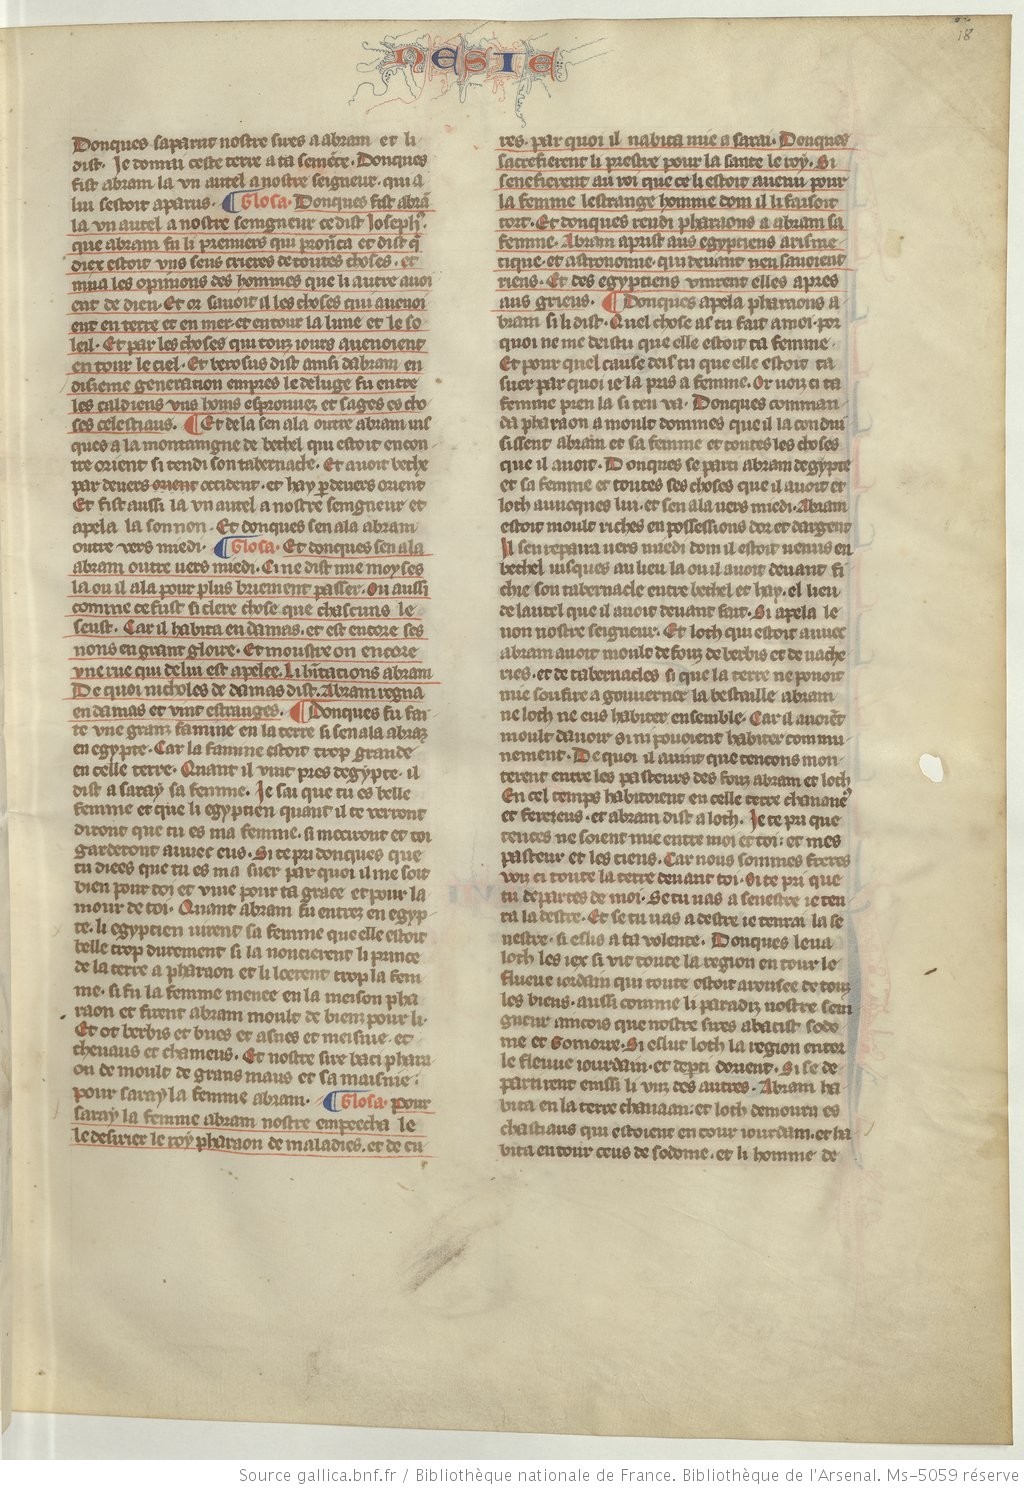 NESIE
18
Donques saparut nostre sires a abram et li
dist. Je donrai ceste terre a ta semēce. Donques
fist abram la vn autel a nostre seigneur. qui a
lui sestoit aparus. Glosa. Donques fist abrā
la vn autel a nostre seingneur ce dist Joseph9.
que abram fu li premiers qui pron̄ca et dist q̄
diex estoit vns seus crieres de toutes choses. et
mua les opinions des hommes que li autre auoi
ent de dieu. Et or sauoit il les choses qui auenoi
ent en terre et en mer. et entour la lune et le so
leil. Et par les choses qui touz iours auenoient
en tour le ciel. Et berosus dist ainsi dabram en
disieme generation empres le deluge fu entre
les caldiens vns homs esprouuez et sages es cho
ses celestiaus. Et de la sen ala outre abram ius
ques a la montaingne de bethel qui estoit encon
tre orient si tendi son tabernacle. Et auoit bethe
par deuers orient occident. et hay p deuers orient
Et fist aussi la vn autel a nostre seingneur et
apela la son non. Et donques sen ala abram
outre vers miedi. Glosa. Et donques sen ala
abram outre uers miedi. Ci ne dist mie moyses
la ou il ala pour plus briement passer. Ou aussi
comme ce fust si clere chose que chascuns le
seust. Car il habita en damas. et est encore ses
nons en grant gloire. Et moustre on encore
vne rue qui de lui est apelee. Li bitacions abram
De quoi nicholes de damas dist. Abram regna
en damas et vint estranges. Donques fu fai
te vne granz famine en la terre si sen ala abraz
en egypte. Car la famine estoit trop grande
en celle terre. Quant il vint pres degypte. il
dist a saray sa femme. Je sai que tu es belle
femme et que li egyptien quant il te verront
diront que tu es ma femme. si mocirront et toi
garderont auuec eus. Si te pri donques que
tu dies que tu es ma suer par quoi il me soit
bien pour toi et viue pour ta grace et pour la
mour de toi. Quant abram fu entrez en egyp
te. li egyptien virent sa femme que elle estoit
belle trop durement si la noncierent li prince
de la terre a pharaon et li loerent trop la fem
me. si fu la femme menee en la meison pha
raon et furent abram moult de biens pour li.
Et ot berbis et bues et asnes et meisnie. et
cheuaus et chameus. Et nostre sire bati phara
on de moult de grans maus et sa maisnie.
pour saray la femme abram. Glosa. Pour
saray la femme abram nostre empeecha le
le desirier le roy pharaon de maladies. et de cu
res. par quoi il nabita mie a sarai. Donques
sacrefierent li prestre pour la sante le roy. Si
senefierent au roi que ce li estoit auenu pour
la femme lestrange homme dom il li faisoit
tort. Et donques rendi pharaons a abram sa
femme. Abram aprist aus egyptiens arisme
tique. et astronomie. qui deuant nen sauoient
riens. Et des egyptiens vinrent elles apres
aus grieus. Donques apela pharaons a
bram si li dist. Quel chose as tu fait a moi. por
quoi ne me deis tu que elle estoit ta femme.
Et pour quel cause deis tu que elle estoit ta
suer par quoi ie la pris a femme. Or voiz ci ta
femme pren la si ten va. Donques comman
da pharaon a moult dommes que il la condui
sissent abram et sa femme et toutes les choses
que il auoit. Donques se parti abram degypte
et sa femme et toutes ses choses que il auoit et
loth auuecques lui. et sen ala uers miedi. Abram
estoit moult riches en possessions dor et dargent
Il sen repaira uers miedi dom il estoit uenus en
bethel iusques au lieu la ou il auoit deuant fi
chie son tabernacle entre bethel et hay. el lieu
de lautel que il auoit deuant fait. Si apela le
non nostre seigneur. Et loth qui estoit auuec
abram auoit moult de fouz de berbis et de vache
ries. et de tabernacles si que la terre ne pouoit
mie soufire a gouuerner la bestaille abram
ne loth ne eus habiter ensemble. Car il auoiēt
moult dauoir si ni pouoient habiter commu
nement. De quoi il auint que tencons mon
terent entre les pasteurs des fouz abram et loth
En cel temps habitoient en celle terre chanane9
et ferezeus. et abram dist a loth. Je te pri que
tences ne soient mie entre moi et toi: et mes
pasteur et les tiens. Car nous sommes freres
voiz ci toute la terre deuant toi. Si te pri que
tu departes de moi. Se tu uas a senestre ie ten
ra la destre. Et se tu uas a destre ie tenrai la se
nestre. si eslis a ta volente. Donques leua
loth les iex si vit toute la region en tour le
flueue iordam qui toute estoit arousee de touz
les biens. aussi comme li paradiz nostre sein
gneur amcois que nostre sires abatist sodo
me et Gomorre. Si eslut loth la region entor
le fleuue iourdam. et depti dorient. Si se de
partirent emssi li vnz des autres. Abram ha
bita en la terre chanaan: et loth demoura es
chastiaus qui estoient en tour iourdam. et ha
bita en tour ceus de sodome. et li homme de
Source gallica.bnf.fr / Bibliothèque nationale de France. Bibliothèque de l'Arsenal. Ms-5059 réserve